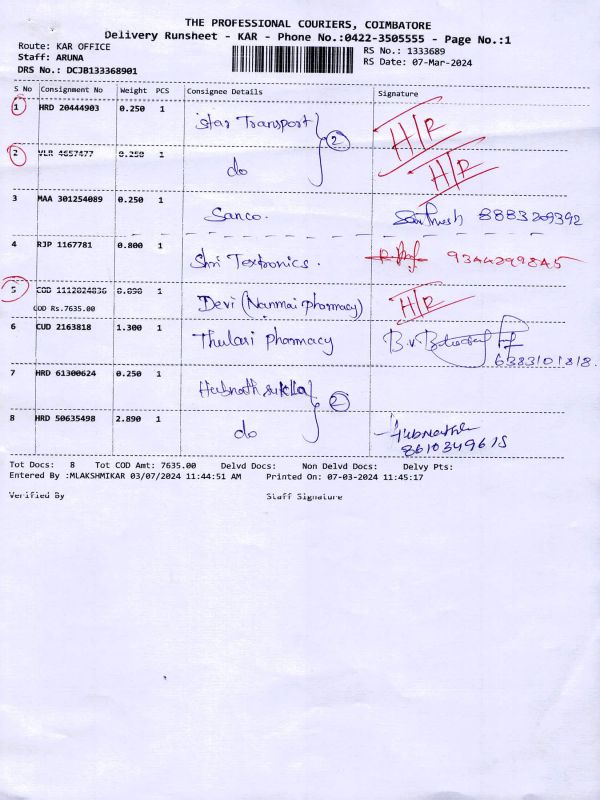 THE PROFESSIONAL COURIERS, COIMBATORE
Delivery Runsheet - KAR - Phone No.:0422-3505555 - Page No.:1
Route: KAR OFFICE
RS No.: 1333689
Staff: ARUNA
RS Date: 07-Mar-2024
DRS No.: DCJB133368901
S No Consignment No Weight PCS Consignee Details Signature
1 HRD 20444903 0.250 1 Star Transport 2 H/R
2 VLR 4657477 0.250 1 do H/R
3 MAA 301254089 0.250 1 Sanco. Santhosh 8883209392
4 RJP 1167781 0.800 1 Shri Textronics. 9344299845
5 COD 1112024836 1 Devi (Nanmai pharmacy) H/R
COD Rs.7635.00
6 CUD 2163818 1.300 1 Thulasi pharmacy B.V
6383101818.
7 HRD 61300624 0.250 1 2
8 HRD 50635498 2.890 1 do
8610349615
Tot Docs: 8 Tot COD Amt: 7635.00 Delvd Docs: Non Delvd Docs: Delvy Pts:
Entered By :MLAKSHMIKAR 03/07/2024 11:44:51 AM Printed On: 07-03-2024 11:45:17
Verified By Staff Signature